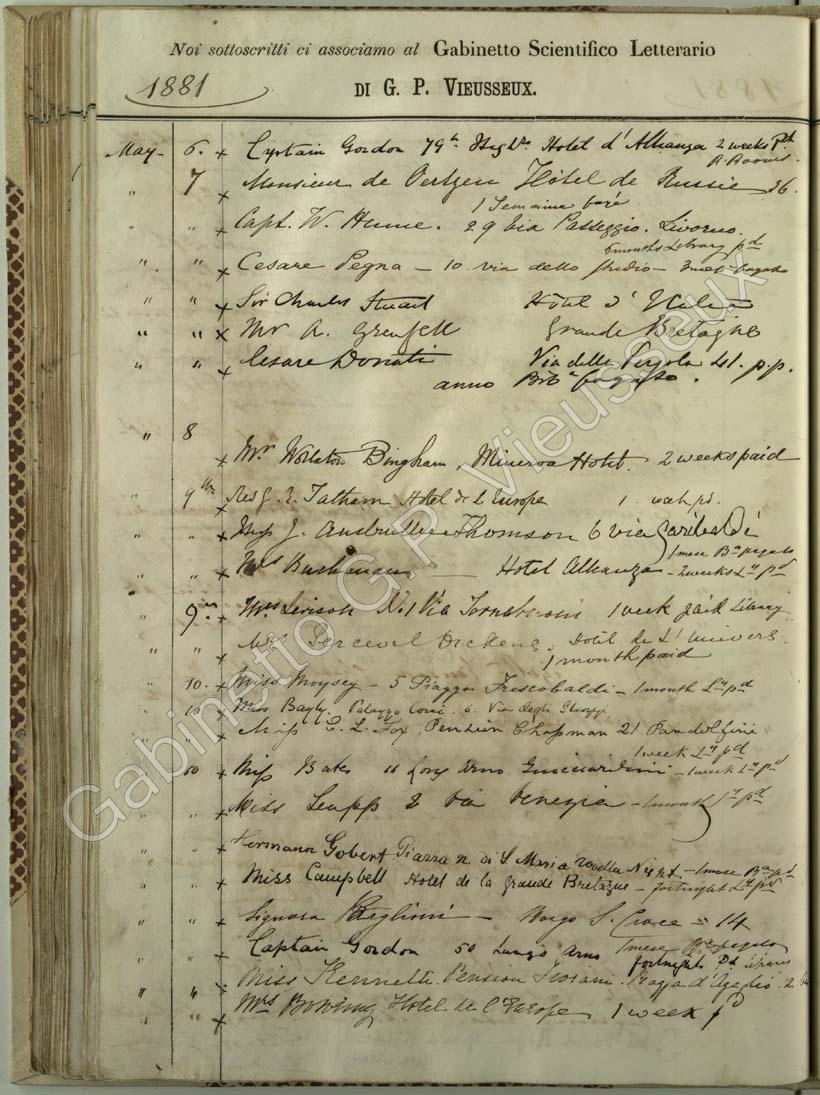 Noi sottoscritti ci associamo al Gabinetto Scientifico Letterario
1881
DI G. P. VIEUSSEUX.
May 6. x Captain Gordon 79th Highrs Hotel d'Allianza 2 weeks pd
R. Rooms.
" 7 x Monsieur de Oertzen Hôtel de Russie 26.
1 Semaine
" " x Capt. W. Hume. 29 Via Passeggio. Livorno.
6 months Library pd
" " x Cesare Pegna - 10. via dello Studio - pagato
" " x Sir Charles Stuart Hotel d'Italie
" " x Mr A. Grenfell Grande Bretagne
" " x Cesare Donati Via della Pergola 41. p.p.
anno pagato.
" 8
x Mr Bingham, Minerva Hotel. 2 weeks paid
" 9th x Rev J. Tatham Hotel de l'Europe 1 week pd.
" " x Miss J. Thomson 6 via Garibaldi
1 mese Ba pagato
" " x Mrs Buchanan — Hotel Allianza - 2 weeks Ly pd
9th x Mrs Levison No. 1 Via Tornabuoni 1 week paid Library
" " Mrs Perceval Dickens, Hotel de L'Univers
1 month paid
" 10. x Miss Moysey - 5 Piazza Frescobaldi - 1 month Ly pd
" 10 x Miss Bagly. Palazzo Corsi 6. Via degli
" x Miss E. L. Fox, Pension Chapman 21 Pandolfini
1 week Ly pd
" 10 x Miss Bates 11 Lung Arno Guicciardini - 1 week Ly pd
" " x Miss 2 Via Venezia - 1 month Ly pd
" " x Hermann Gobert Piazza n. di S Maria Novella N - 1 mese Ba pd
" " x Miss Campbell Hotel de la Grande Bretagne - fortnight Ly pd
" " x Signora Baglioni - Borgo S. Croce = 14
1 mese Ba pagato
" " x Captain Gordon 50 Lungo Arno fortnight Pd
" " x Miss Pension Piazza d'Azeglio. 2
" " x Mrs Hotel de l'Europe 1 week pd
Gabinetto G.P. Vieusseux